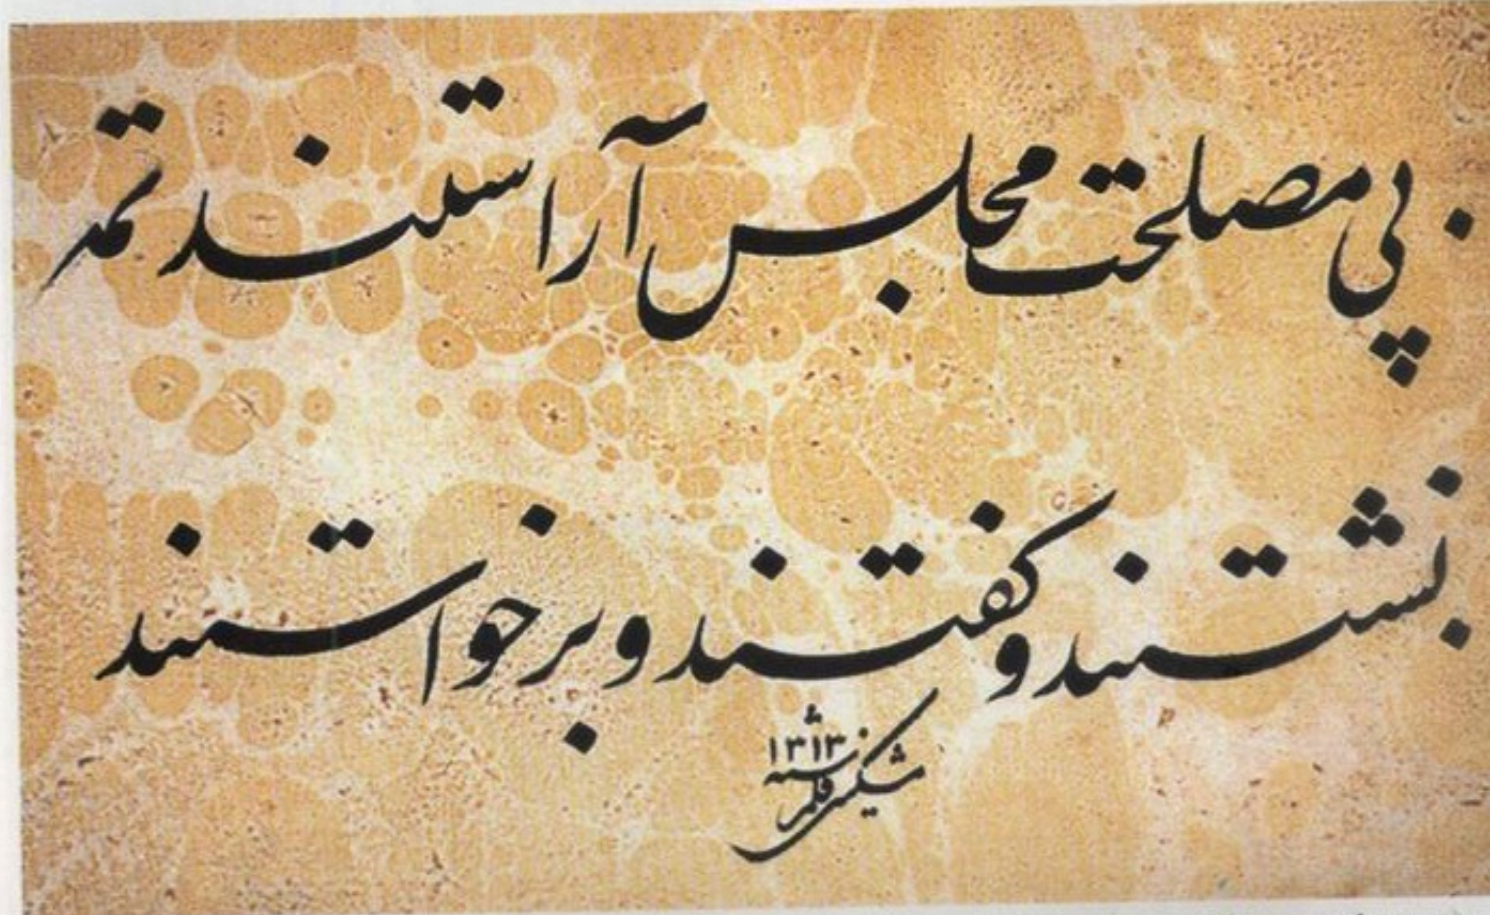 پی مصلحت مجلس آراستند تمد
نشستند و گفتند و برخواستند
مشکین قلم سنه ۱۳۱۳